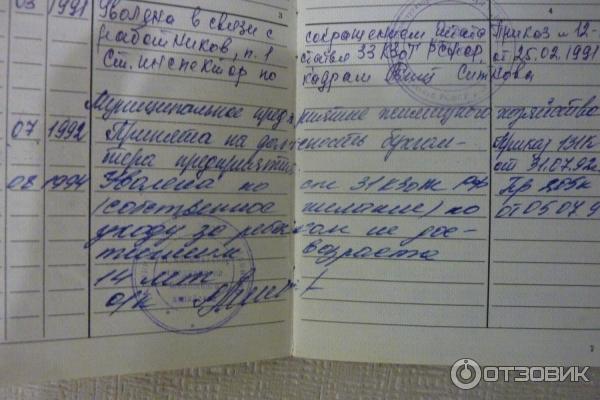 3
4
03 1991 Уволена в связи с сокращением штата Приказ №12-
работников, п. 1 статьи 33 КЗоТ РСФСР, от 25.02.1991
Ст. инспектор по кадрам
Муниципальное предприятие жилищного хозяйства
07 1992 Принята на должность бухгал- Приказ 131к
тера предприятия. от 31.07.92
08 1994 Уволена по ст 31 КЗоТ РФ Пр
(собственное желание) по от 05 07 9
уходу за ребенком не дос-
тигшим возраста
14 лет
о/к
7
ОТЗОВИК